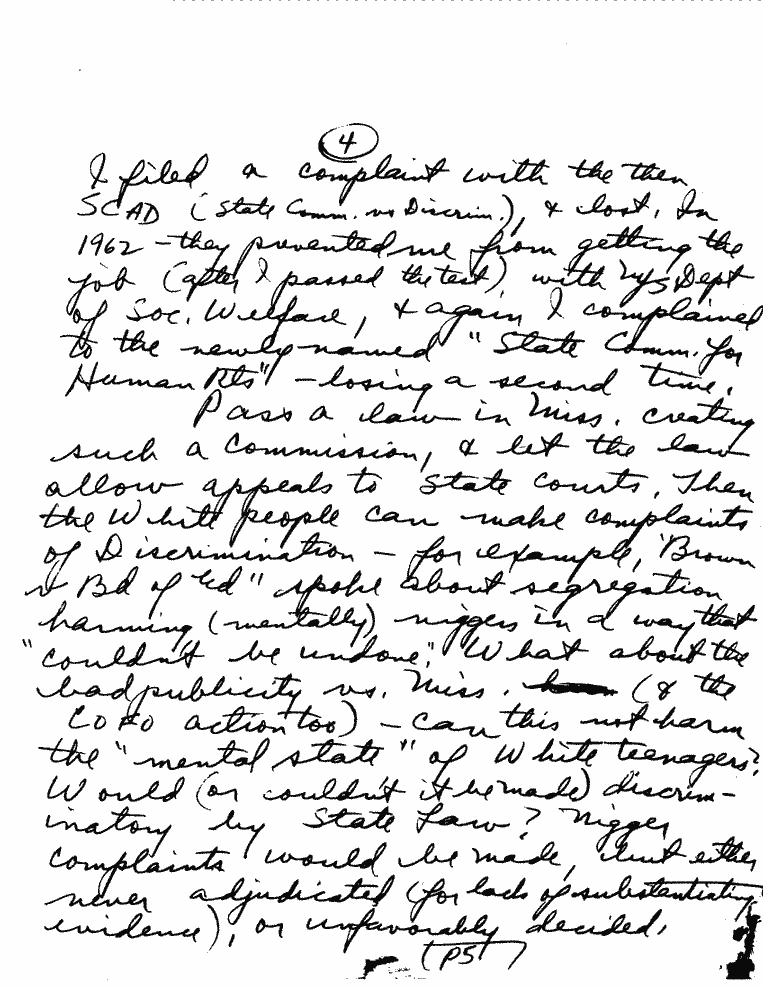 4
I filed a complaint with the then
SCAD (State Comm. vs Discrim.), & lost. In
1962 - they prevented me from getting the
job (after I passed the test) with NYS Dept
of Soc. Welfare, & again I complained
to the newly-named "State Comm. for
Human Rts" - losing a second time.
Pass a law in Miss. creating
such a Commission, & let the law
allow appeals to State Courts. Then
the White people can make complaints
of Discrimination - for example, "Brown
v Bd of Ed" spoke about segregation
harming (mentally) niggers in a way that
"couldn't be undone". What about the
bad publicity vs. Miss. (& the
COFO action too) - can this not harm
the "mental state" of White teenagers?
Would (or couldn't it be made) discrim-
inatory by State Law? Nigger
complaints would be made, but either
never adjudicated (for lack of substantiating
evidence), or unfavorably decided.
(P5)